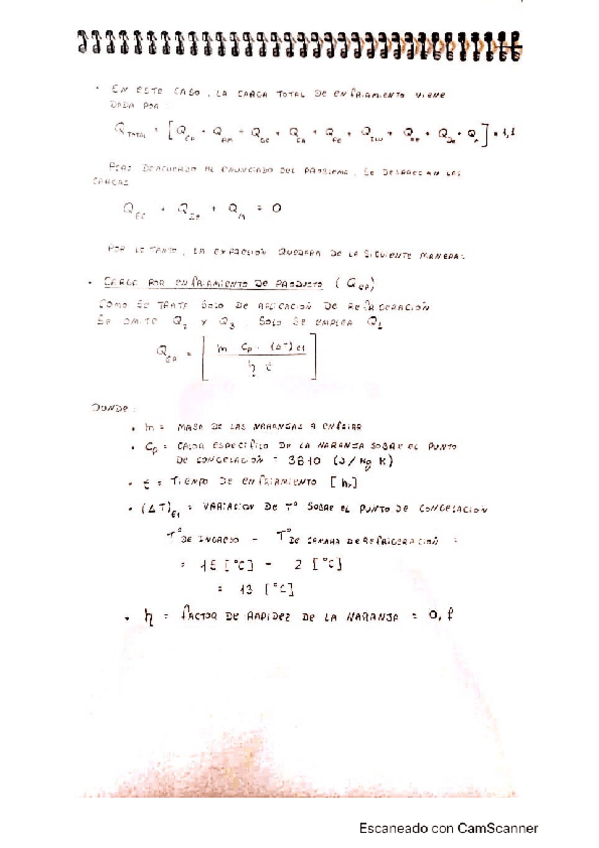 • EN ESTE CASO, LA CARGA TOTAL DE ENFRIAMIENTO VIENE
DADA POR
Q TOTAL = [Q CP + Q + Q + Q CA + Q + Q ILU + Q + Q + Q] * 1,1
PERO DEACUERDO AL ENUNCIADO DEL PROBLEMA, SE DESPRECIAN LAS
CARGAS
Q + Q + Q A = 0
POR LO TANTO, LA EXPRECIÓN QUEDARA DE LA SIGUIENTE MANERA:
• CARGA POR ENFRIAMIENTO DE PRODUCTO (Q EP)
COMO SE TRATA SOLO DE APLICACIÓN DE REFRIGERACIÓN
SE OMITE Q₂ Y Q₃. SOLO SE EMPLEA Q₁
Q EP = [ m Cp . (ΔT) E1 / η t ]
DONDE:
• m = MASA DE LAS NARANJAS A ENFRIAR
• Cp = CALOR ESPECÍFICO DE LA NARANJA SOBRE EL PUNTO
DE CONGELACIÓN = 3810 (J/Kg K)
• t = TIEMPO DE ENFRIAMIENTO [hr]
• (ΔT) E1 = VARIACION DE Tº SOBRE EL PUNTO DE CONGELACION
Tº DE INGRESO - Tº DE CAMARA DE REFRIGERACIÓN =
= 15 [°C] - 2 [°C]
= 13 [°C]
• η = FACTOR DE RAPIDEZ DE LA NARANJA = 0,
Escaneado con CamScanner